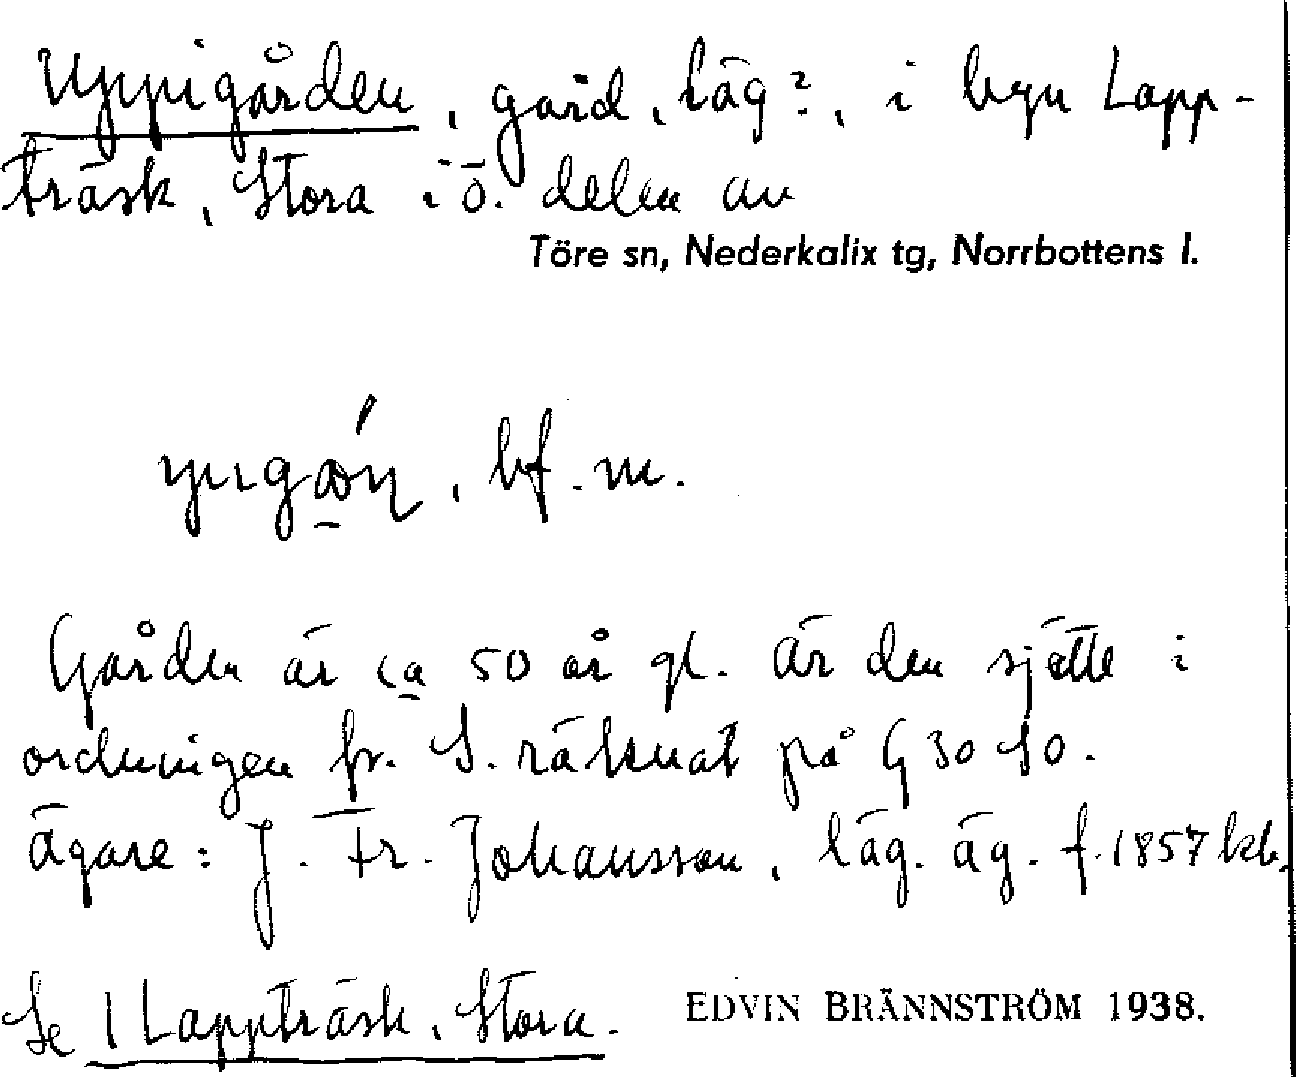 Uppigården, gård, läg?, i byn Lapp-
träsk, Stora i ö. delen av
Töre sn, Nederkalix tg, Norrbottens l.
bf. m.
Gården är ca 50 år gl. Är den sjätte i
ordningen fr. S. räknat på G 30 S0.
Ägare: J. Fr. Johansson, läg. äg. f. 1857 kb.
Se 1 Lappträsk, Stora.
EDVIN BRÄNNSTRÖM 1938.